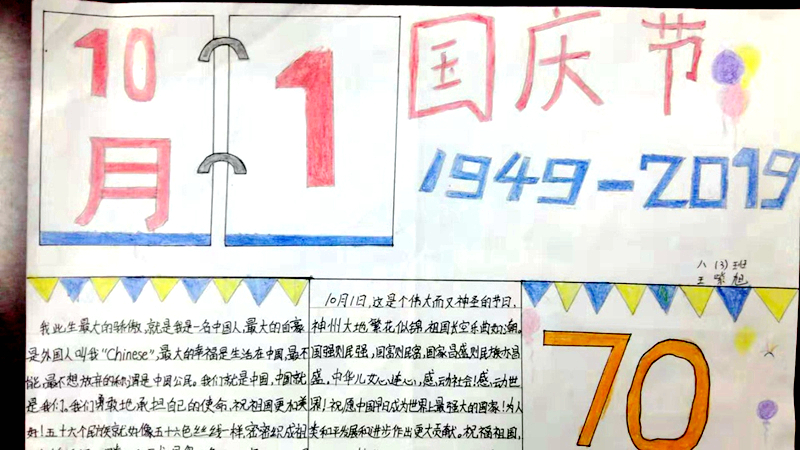 10
月
1
国庆节
1949-2019
八(3)班
王
我此生最大的骄傲,就是我是一名中国人,最大的自豪
是外国人叫我“Chinese”,最大的幸福是生活在中国,最不
能、最不想放弃的称谓是中国公民。我们就是中国,中国就
是我们。我们勇敢地承担自己的使命,祝祖国更加美
好!五十六个民族就好像五十六色丝线一样密密织成祖
10月1日,这是个伟大而又神圣的节日,
神州大地繁花似锦,祖国长空乐曲如潮。
国强则民强,国富则民富,国家昌盛则民族亦昌
盛,中华儿女心连心,感动社会!感动世
界!祝愿中国早日成为世界上最强大的国家!为人
类和平发展和进步作出更大贡献。祝福祖国,
70